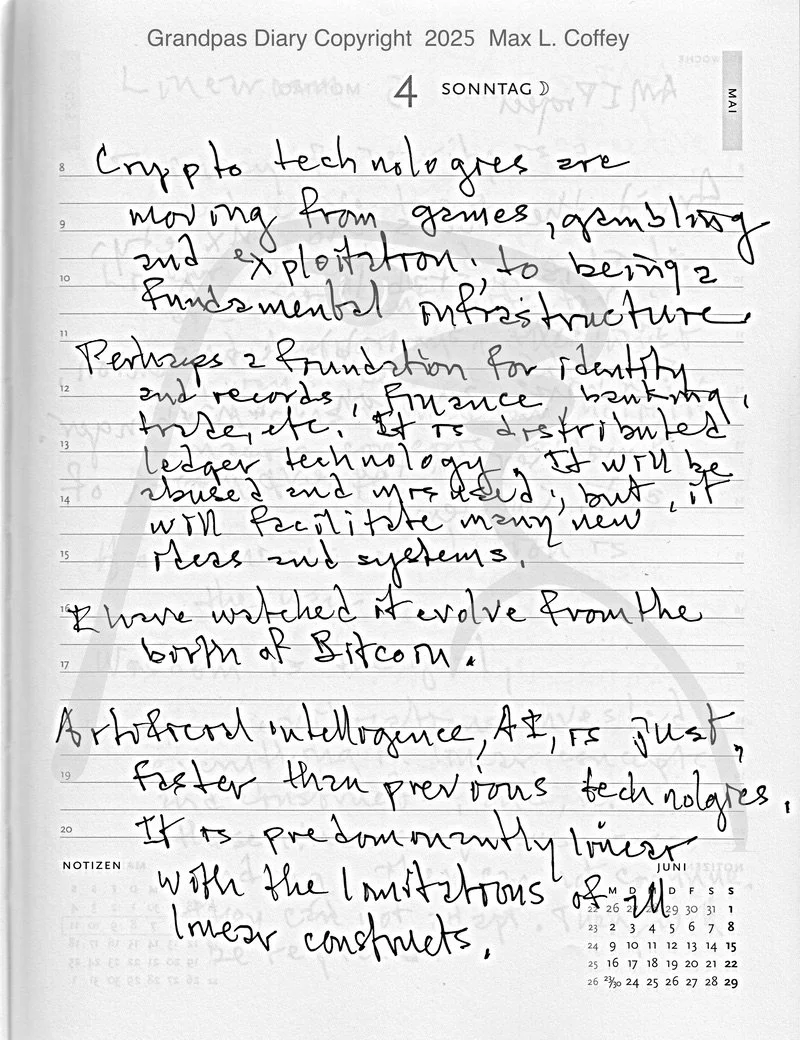 Grandpas Diary Copyright 2025 Max L. Coffey
4 SONNTAG
MAI
8
Crypto technologies are
moving from games, gambling
9
and exploitation, to being a
10
fundamental infrastructure.
11
Perhaps a foundation for identity
12
and records, finance banking,
trade, etc. It is distributed
13
ledger technology. It will be
14
abused and misused, but, it
will facilitate many new
15
ideas and systems.
16
I have watched it evolve from the
birth of Bitcoin.
17
Artificial intelligence, AI, is just,
19
faster than previous technolgies.
20
It is predominantly linear
NOTIZEN
JUNI
with the limitations of all
linear constructs.
M D M D F S S
22 26 27 28 29 30 31 1
23 2 3 4 5 6 7 8
24 9 10 11 12 13 14 15
25 16 17 18 19 20 21 22
26 23/30 24 25 26 27 28 29